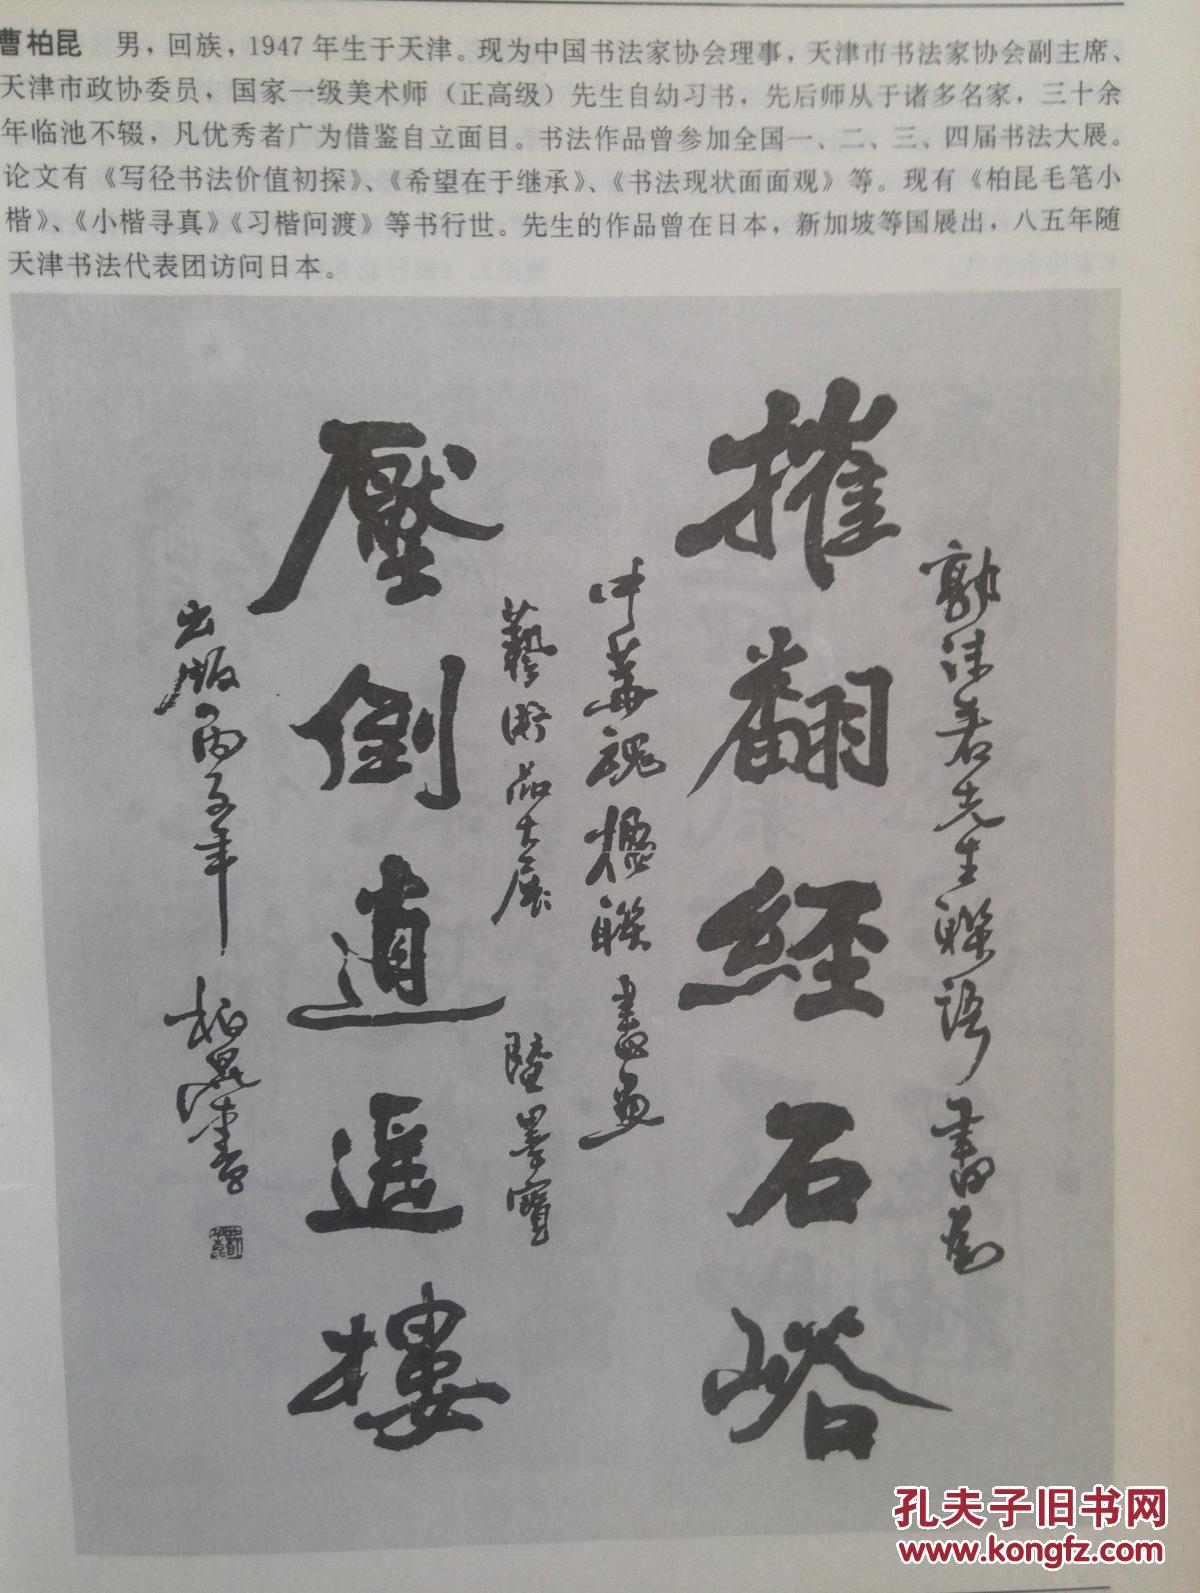 曹柏昆　男，回族，1947年生于天津。现为中国书法家协会理事，天津市书法家协会副主席、
天津市政协委员，国家一级美术师（正高级）先生自幼习书，先后师从于诸多名家，三十余
年临池不辍，凡优秀者广为借鉴自立面目。书法作品曾参加全国一、二、三、四届书法大展。
论文有《写径书法价值初探》、《希望在于继承》、《书法现状面面观》等。现有《柏昆毛笔小
楷》、《小楷寻真》《习楷问渡》等书行世。先生的作品曾在日本，新加坡等国展出，八五年随
天津书法代表团访问日本。
郭沫若先生联语书为
摧翻经石峪
中华魂楹联书画
艺术品大展 墨宝
壓倒逍遥楼
出版丙子年 柏昆书
孔夫子旧书网
www.kongfz.com